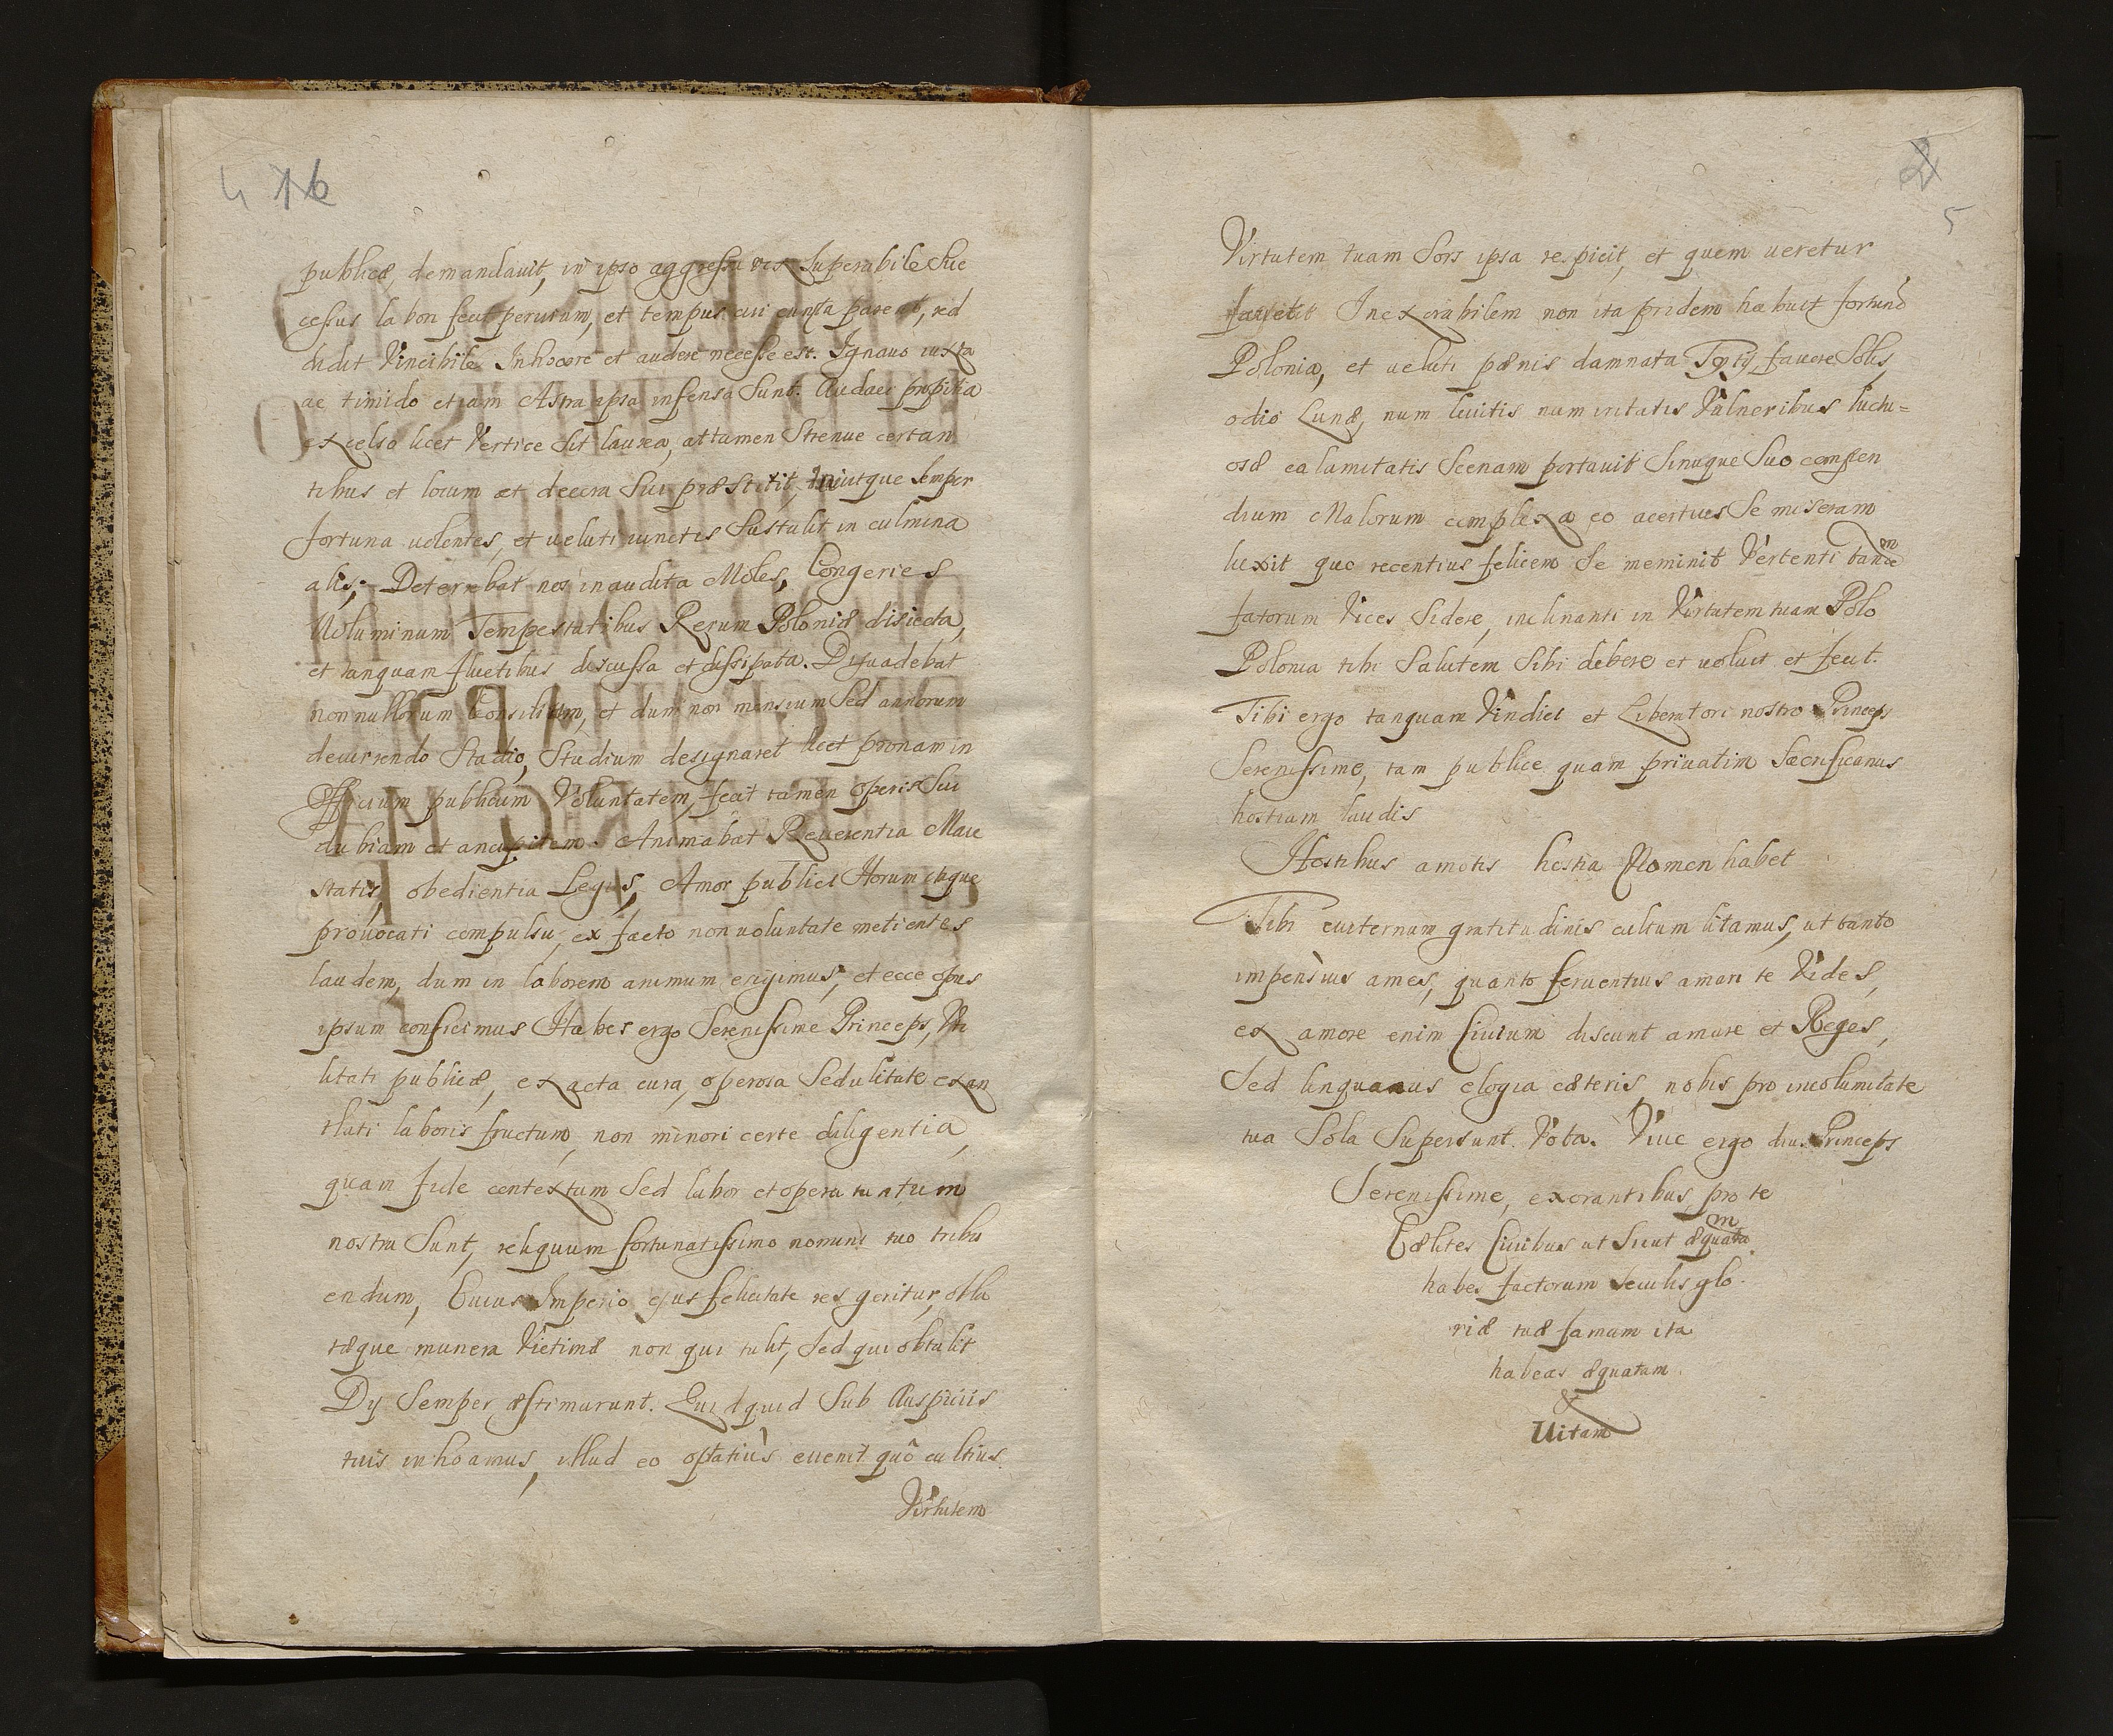 4 1b
publicæ, demandauit, in ipso aggressu vix Superabile Suc
cessus labori fecit peruium, et tempus cui cuncta parent, red
didit Vincibile Inhoare et audere necesse est. Ignauo iuxta
ac timido etiam Astra ipsa infensa Sunt. Audaci propitia
excelso licet Vertice Sit laurea, attamen Strenue certan
tibus et locum et decora Sui præstitit, iuitque Semper
fortuna uolentes, et ueluti iunctis Sustulit in culmina
alis; Deterrebat nos inaudita Moles, Congeries
Voluminum Tempestatibus Rerum Poloniæ disiecta,
et tanquam fluctibus discussa et dissipata. Disuadebat
nonnullorum Consilium, et dum non mensium Sed annorum
decurrendo Stadio, Studium designaret licet pronam in
Officium publicum Voluntatem, fecit tamen operis Sui
dubiam et ancipitem. Animabat Reuerentia Maie
statis, obedientia Legis, Amor publici Horum itaque
prouocati compulsu, ex facto non uoluntate metientes
laudem, dum in laborem animum erigimus, et ecce opus
ipsum conficimus Habes ergo Serenissime Princeps, Vti
litati publicæ, exacta cura, operosa Sedulitate exan
tlati laboris fructum, non minori certe diligentia,
quam fide contextum Sed labor et opera tantum
nostra Sunt, reliquum fortunatissimo nomini tuo tribu
endum, Cuius Imperio ejus felicitate res geritur, obla
tæque munera Victimæ non qui tulit, Sed qui obtulit
Dij Semper æstimarunt. Quidquid Sub Auspiciis
tuis inhoamus, illud eo optatiùs euenit quô cultius
Virtutem
2
5
Virtutem tuam Sors ipsa respicit, et quem ueretur
Inexorabilem non ita pridem habuit fortunã
Polonia, et ueluti pænis damnata fauore Solis
odio Lunæ, num leuitis num irritatis Vulneribus luctu=
osæ calamitatis Scenam portauit Sinuque Suo compen
dium Malorum complexa eo acertius Se miseram
luxit quo recentius felicem Se meminit Vertenti tandem
fatorum Vices Sidere, inclinanti in Virtutem tuam Polo
Polonia tibi Salutem Sibi debere et uoluit et fecit.
Tibi ergo tanquam Vindici et Liberatori nostro Princeps
Serenissime, tam publice quam priuatim Sacrificamus
hostiam laudis
Hostibus amotis hostia Nomen habet
Tibi euiternum gratitudinis cultum litamus, ut tanto
impensius ames, quanto feruentius amari te Vides,
ex amore enim Ciuium discunt amare et Reges,
Sed linquamus elogia cæteris, nobis pro incolumitate
tua Sola Supersunt Vota. Viue ergo diu Princeps
Serenissime, exorantibus pro te
Cælites Ciuibus ut Sicut æquatam
habes factorum Seculis glo
riæ tuæ famam ita
habeas æquatam
&
Uitam